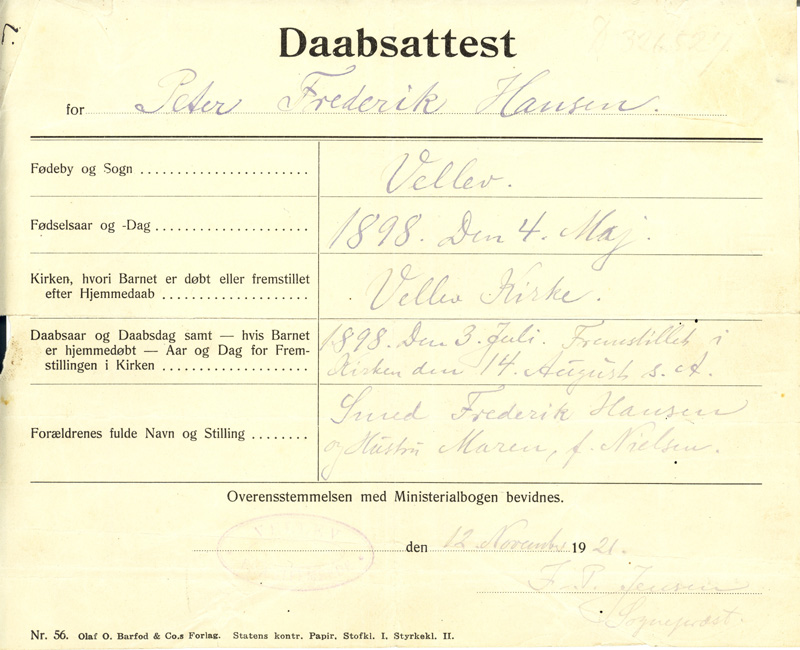 Daabsattest
for Peter Frederik Hansen.
Fødeby og Sogn
Vellev.
Fødselsaar og -Dag
1898. Den 4. Maj.
Kirken, hvori Barnet er døbt eller fremstillet
efter Hjemmedaab
Vellev Kirke.
Daabsaar og Daabsdag samt — hvis Barnet
er hjemmedøbt — Aar og Dag for Frem-
stillingen i Kirken
1898. Den 3. Juli. Fremstillet i
Kirken den 14. August s. A.
Forældrenes fulde Navn og Stilling
Smed Frederik Hansen
og Hustru Maren, f. Nielsen.
Overensstemmelsen med Ministerialbogen bevidnes.
den 12 November 1921.
Jensen
Sognepræst.
Nr. 56. Olaf O. Barfod & Co.s Forlag. Statens kontr. Papir. Stofkl. I. Styrkekl. II.